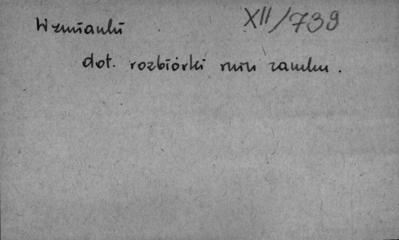 XII/739
Wzmianki
dot. rozbiórki ruin zamku.